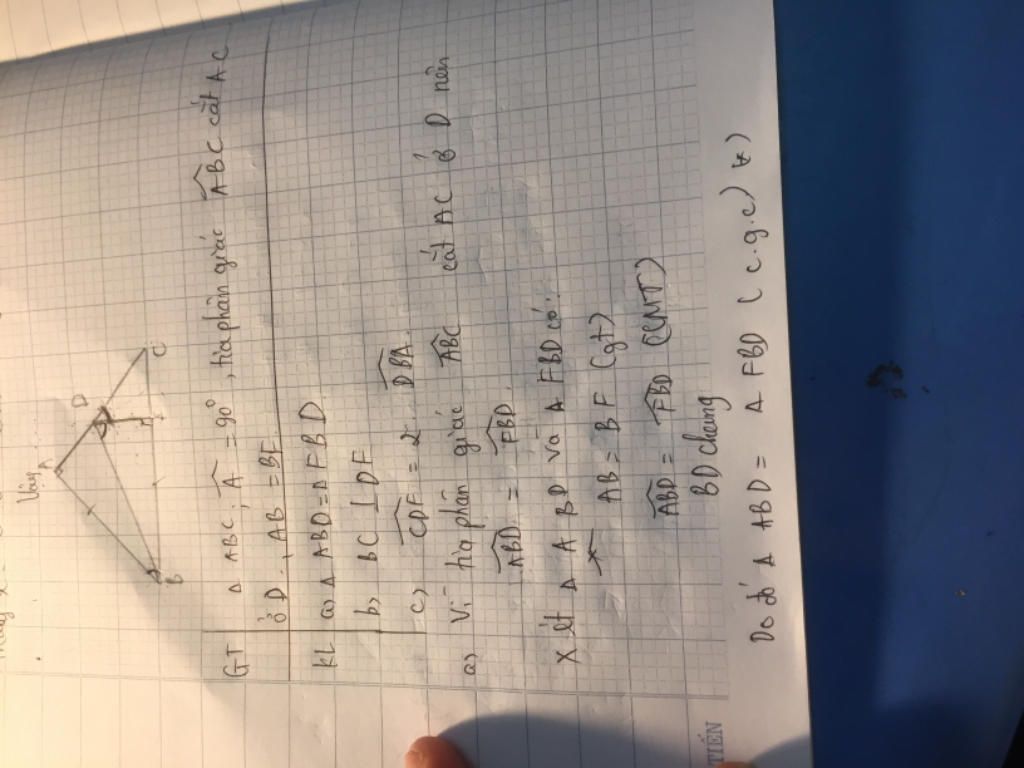 Vậy
A
D
B
F
C
GT Δ ABC, Â = 90°, tia phân giác ABC cắt AC
ở D, AB = BF
KL a, Δ ABD = Δ FBD
b, BC ⊥ DF
c, CDF = 2 DBA.
a, Vì tia phân giác ABC cắt AC ở D nên
ABD = FBD
Xét Δ ABD và Δ FBD có:
AB = BF (gt)
ABD = FBD (CMT)
BD chung
Do đó Δ ABD = Δ FBD ( c.g.c)
TIẾN